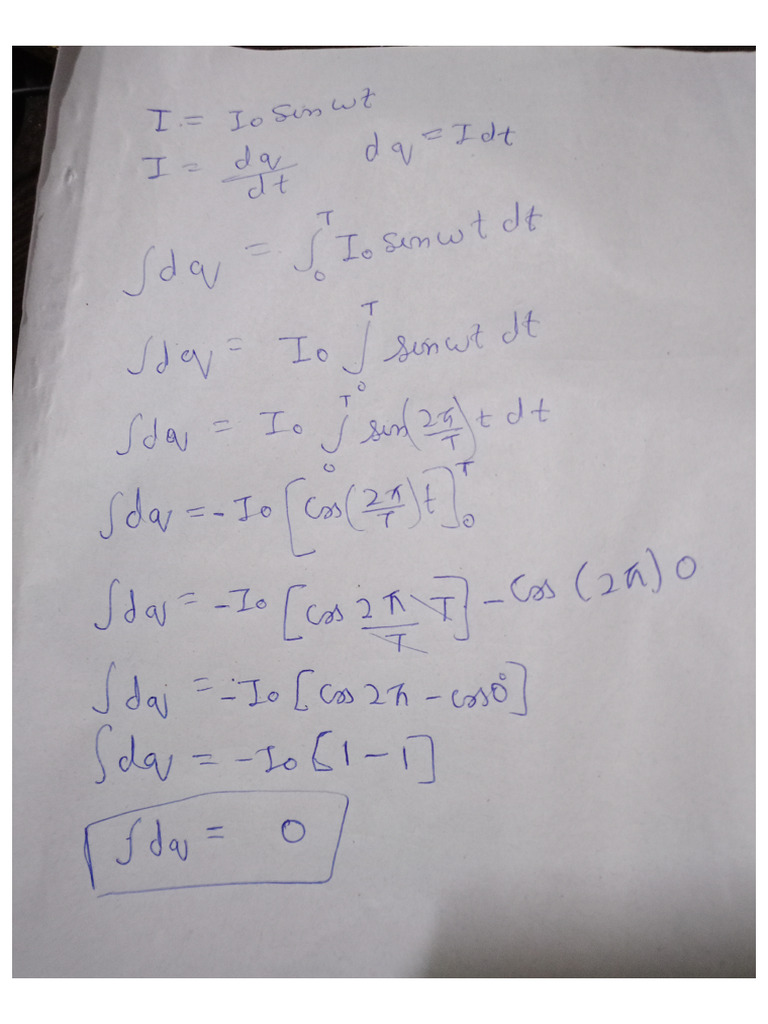 I = I₀ sin ωt
I = dq/dt    dq = I dt
∫dq = ∫₀ᵀ I₀ sin ωt dt
∫dq = I₀ ∫₀ᵀ sin ωt dt
∫dq = I₀ ∫₀ᵀ sin(2π/T) t dt
∫dq = -I₀ [cos(2π/T) t]₀ᵀ
∫dq = -I₀ [cos 2π/T T] - cos (2π) 0
∫dq = -I₀ [cos 2π - cos 0°]
∫dq = -I₀ [1 - 1]
∫dq = 0